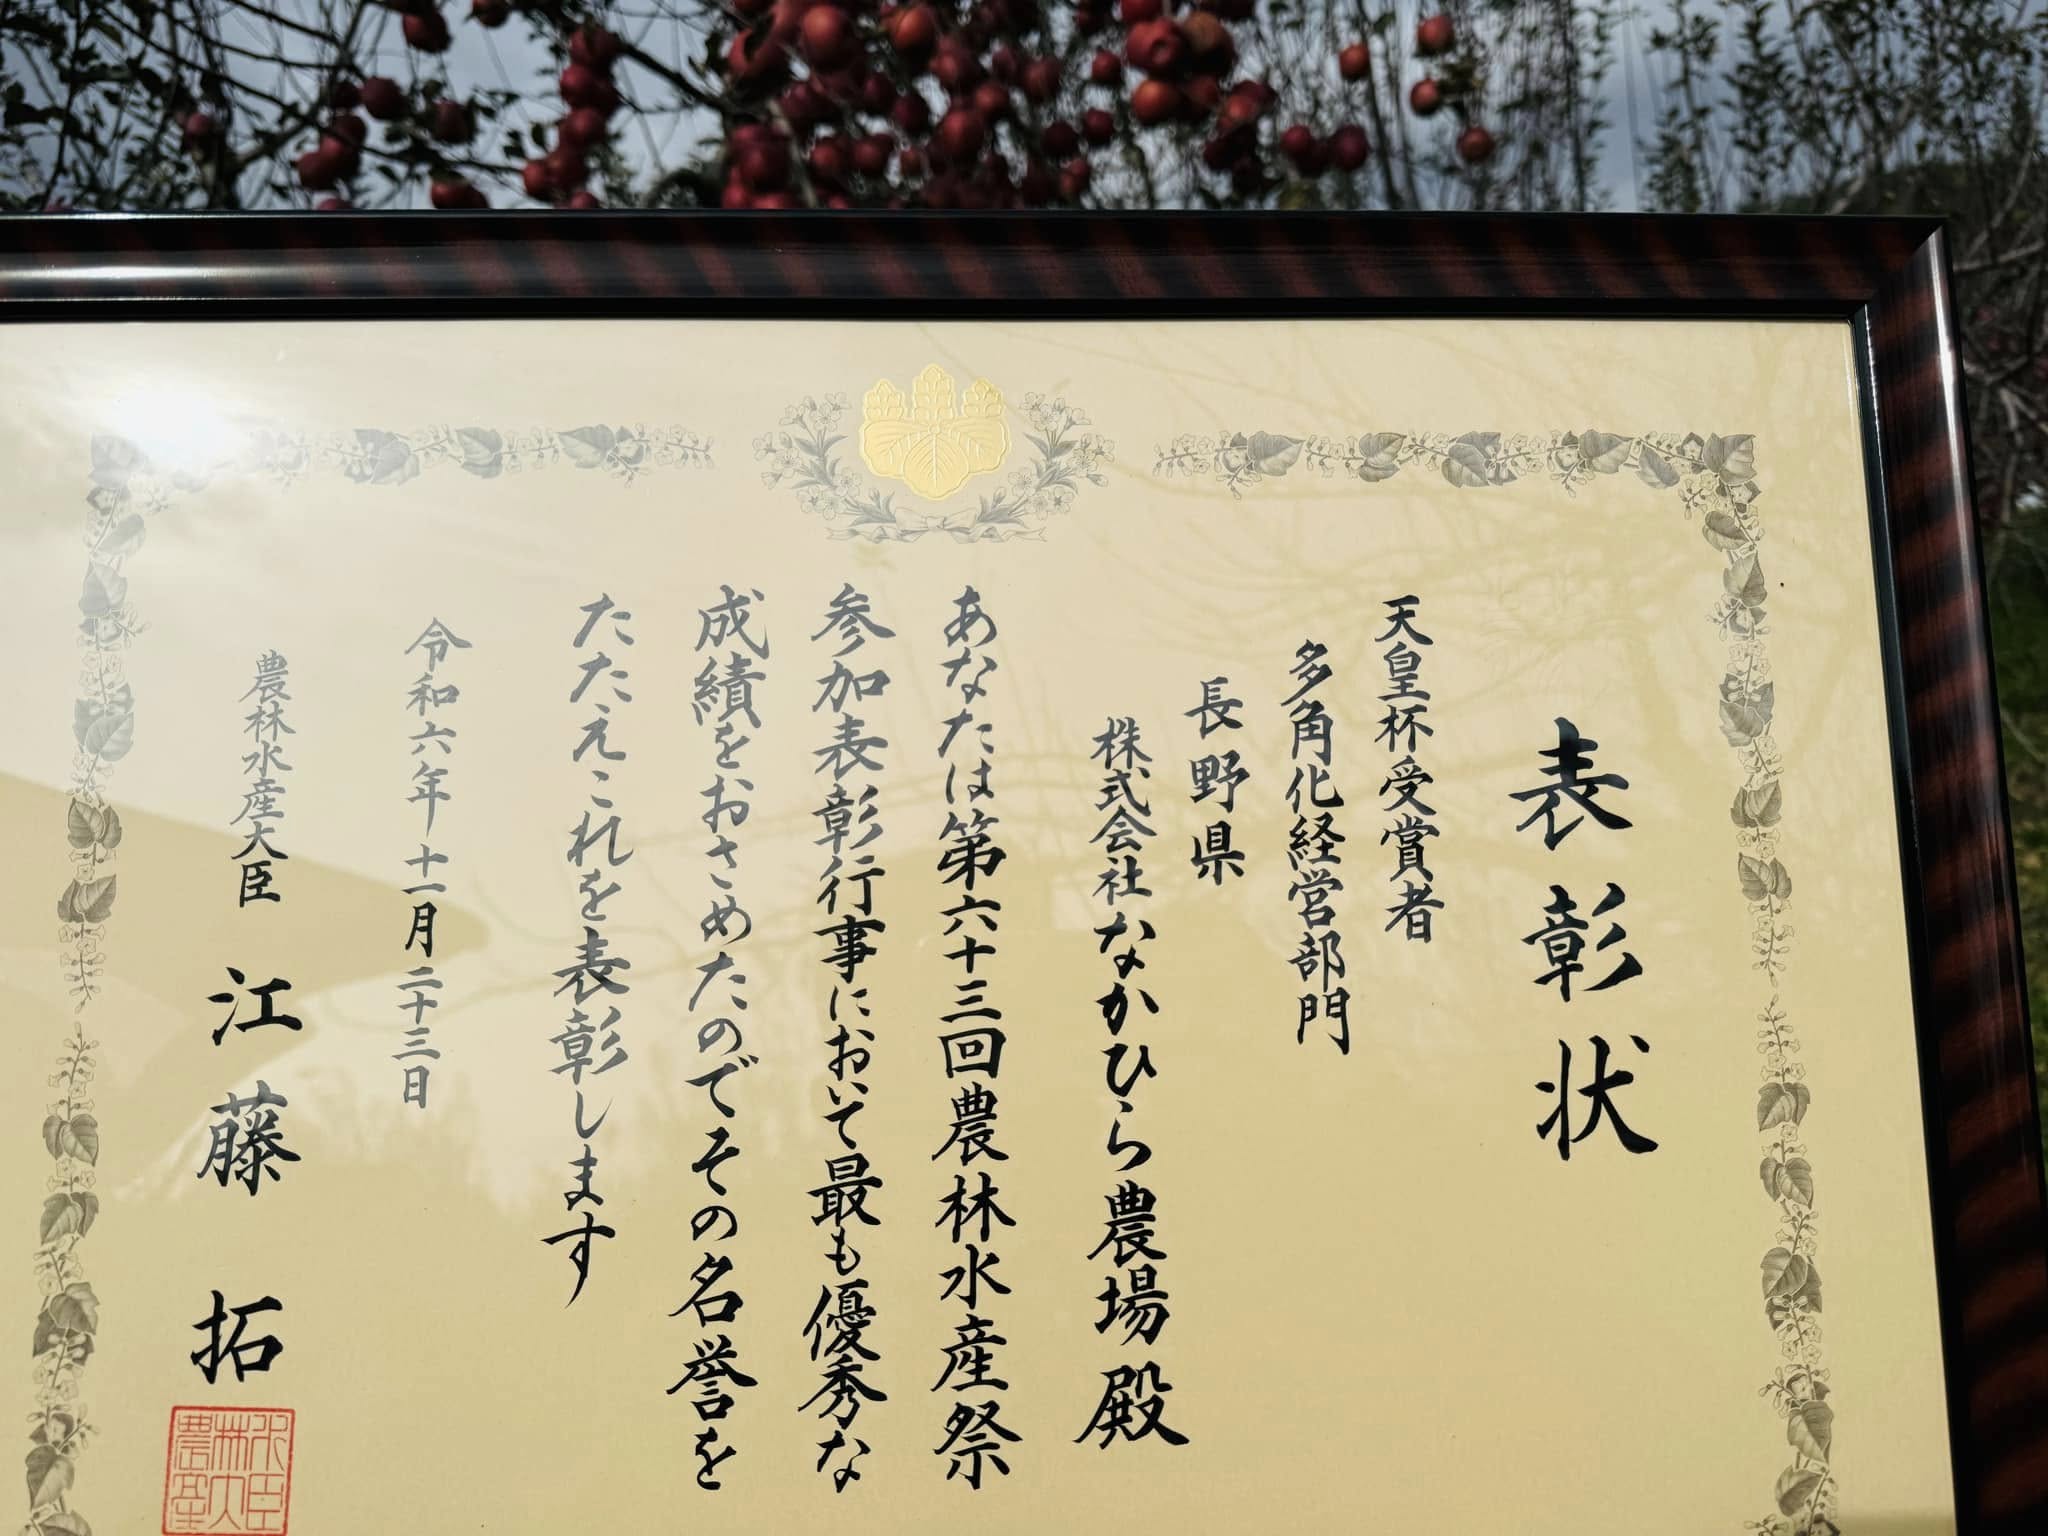 表彰状
天皇杯受賞者
多角化経営部門
長野県
株式会社なかひら農場殿
あなたは第六十三回農林水産祭
参加表彰行事において最も優秀な
成績をおさめたのでその名誉を
たたえこれを表彰します
令和六年十一月二十三日
農林水産大臣 江藤拓